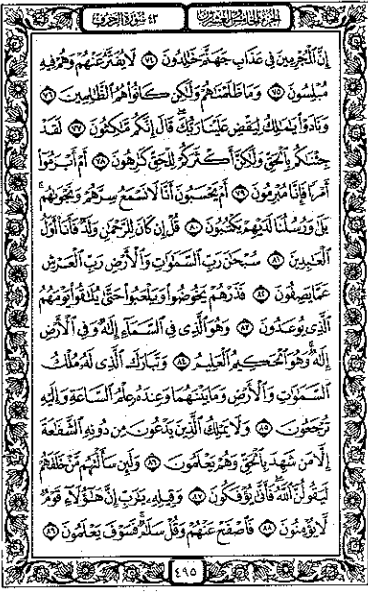 الجزء الخامس والعشرون
٤٣ سورة الزخرف
إِنَّ ٱلْمُجْرِمِينَ فِى عَذَابِ جَهَنَّمَ خَٰلِدُونَ ٧٤ لَا يُفَتَّرُ عَنْهُمْ وَهُمْ فِيهِ
مُبْلِسُونَ ٧٥ وَمَا ظَلَمْنَٰهُمْ وَلَٰكِن كَانُوا۟ هُمُ ٱلظَّٰلِمِينَ ٧٦
وَنَادَوْا۟ يَٰمَٰلِكُ لِيَقْضِ عَلَيْنَا رَبُّكَ ۖ قَالَ إِنَّكُم مَّٰكِثُونَ ٧٧ لَقَدْ
جِئْنَٰكُم بِٱلْحَقِّ وَلَٰكِنَّ أَكْثَرَكُمْ لِلْحَقِّ كَٰرِهُونَ ٧٨ أَمْ أَبْرَمُوٓا۟
أَمْرًا فَإِنَّا مُبْرِمُونَ ٧٩ أَمْ يَحْسَبُونَ أَنَّا لَا نَسْمَعُ سِرَّهُمْ وَنَجْوَىٰهُم ۚ
بَلَىٰ وَرُسُلُنَا لَدَيْهِمْ يَكْتُبُونَ ٨٠ قُلْ إِن كَانَ لِلرَّحْمَٰنِ وَلَدٌ فَأَنَا۠ أَوَّلُ
ٱلْعَٰبِدِينَ ٨١ سُبْحَٰنَ رَبِّ ٱلسَّمَٰوَٰتِ وَٱلْأَرْضِ رَبِّ ٱلْعَرْشِ
عَمَّا يَصِفُونَ ٨٢ فَذَرْهُمْ يَخُوضُوا۟ وَيَلْعَبُوا۟ حَتَّىٰ يُلَٰقُوا۟ يَوْمَهُمُ
ٱلَّذِى يُوعَدُونَ ٨٣ وَهُوَ ٱلَّذِى فِى ٱلسَّمَآءِ إِلَٰهٌ وَفِى ٱلْأَرْضِ
إِلَٰهٌ ۚ وَهُوَ ٱلْحَكِيمُ ٱلْعَلِيمُ ٨٤ وَتَبَارَكَ ٱلَّذِى لَهُۥ مُلْكُ
ٱلسَّمَٰوَٰتِ وَٱلْأَرْضِ وَمَا بَيْنَهُمَا وَعِندَهُۥ عِلْمُ ٱلسَّاعَةِ وَإِلَيْهِ
تُرْجَعُونَ ٨٥ وَلَا يَمْلِكُ ٱلَّذِينَ يَدْعُونَ مِن دُونِهِ ٱلشَّفَٰعَةَ
إِلَّا مَن شَهِدَ بِٱلْحَقِّ وَهُمْ يَعْلَمُونَ ٨٦ وَلَئِن سَأَلْتَهُم مَّنْ خَلَقَهُمْ
لَيَقُولُنَّ ٱللَّهُ ۖ فَأَنَّىٰ يُؤْفَكُونَ ٨٧ وَقِيلِهِۦ يَٰرَبِّ إِنَّ هَٰٓؤُلَآءِ قَوْمٌ
لَّا يُؤْمِنُونَ ٨٨ فَٱصْفَحْ عَنْهُمْ وَقُلْ سَلَٰمٌ ۚ فَسَوْفَ يَعْلَمُونَ ٨٩
٤٩٥